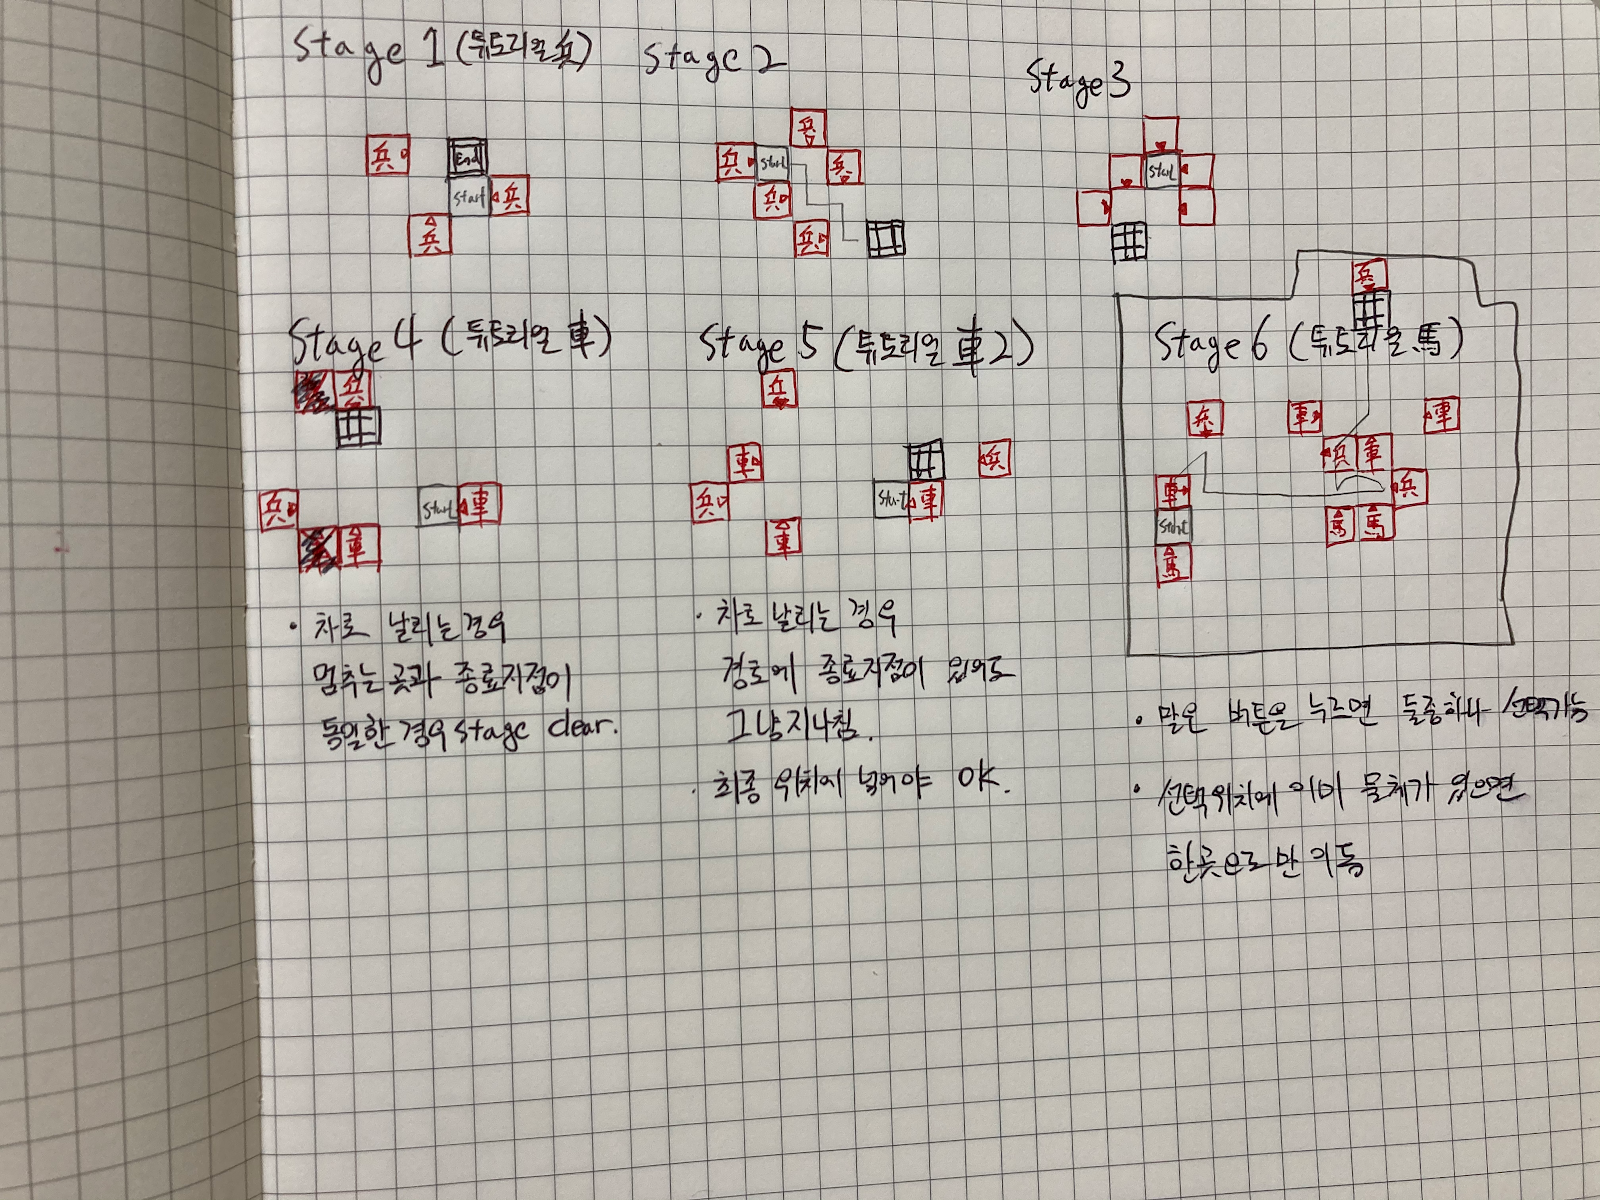 Stage 1 (튜토리얼 兵)
Stage 2
Stage 3
兵
End
Start
兵
兵
兵
兵
Start
兵
兵
兵
Start
Stage 4 (튜토리얼 車)
兵
兵
Start
車
車
Stage 5 (튜토리얼 車2)
兵
車
兵
兵
Start
車
車
兵
Stage 6 (튜토리얼 馬)
兵
車
車
兵
車
車
兵
Start
馬
馬
馬
· 차로 날리는 경우
멈추는 곳과 종료지점이
동일한 경우 stage clear.
· 차로 날리는 경우
경로에 종료지점이 있어도
그냥 지나침.
· 최종 위치에 넣어야 OK.
· 말은 버튼을 누르면 둘중하나 선택가능
· 선택위치에 이미 물체가 있으면
한곳으로만 이동